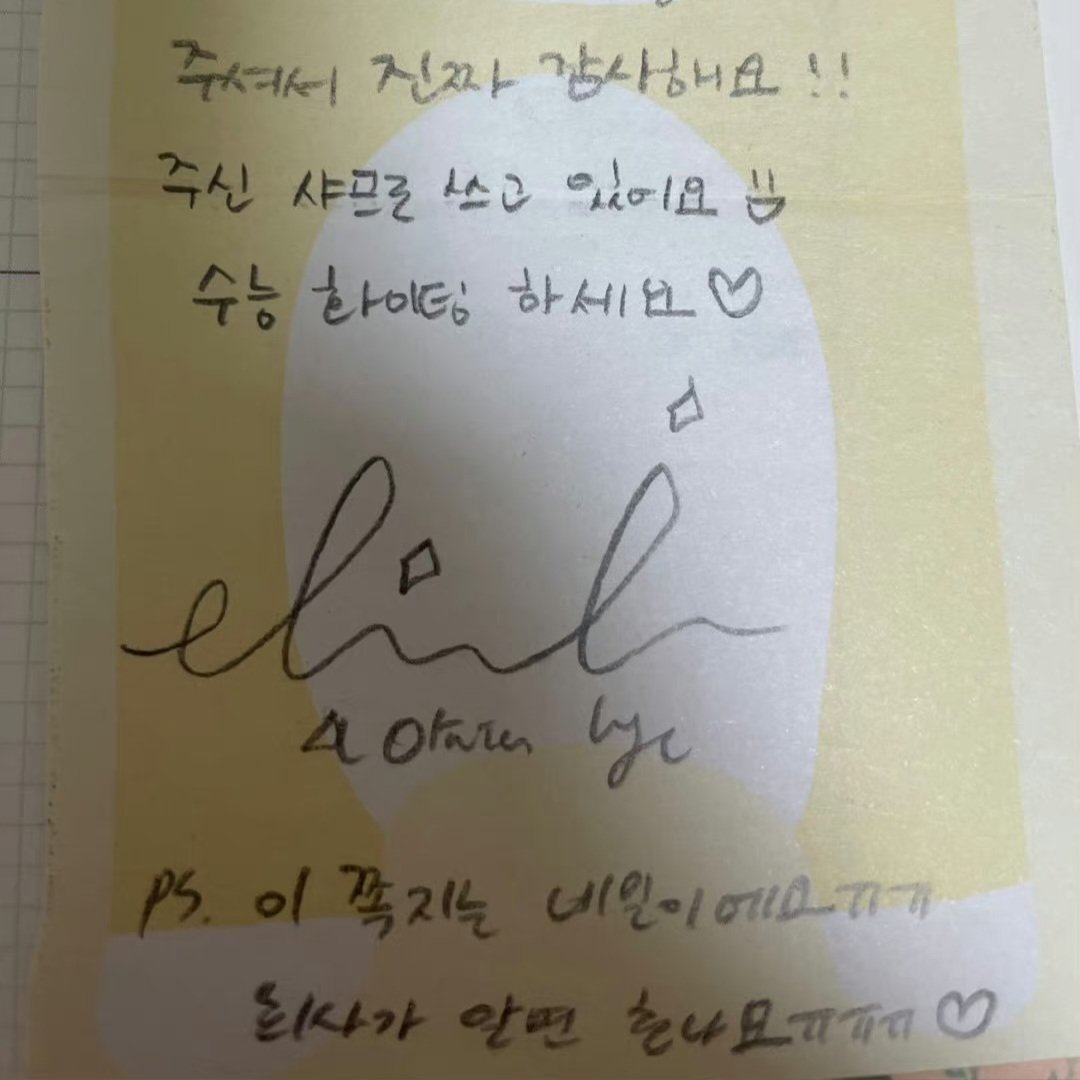 주셔서 진짜 감사해요!!
주신 샤프로 쓰고 있어요
수능 화이팅 하세요♡
bye
PS. 이 쪽지는 비밀이에요ㅠㅠ
회사가 알면 혼나요ㅠㅠㅠ♡